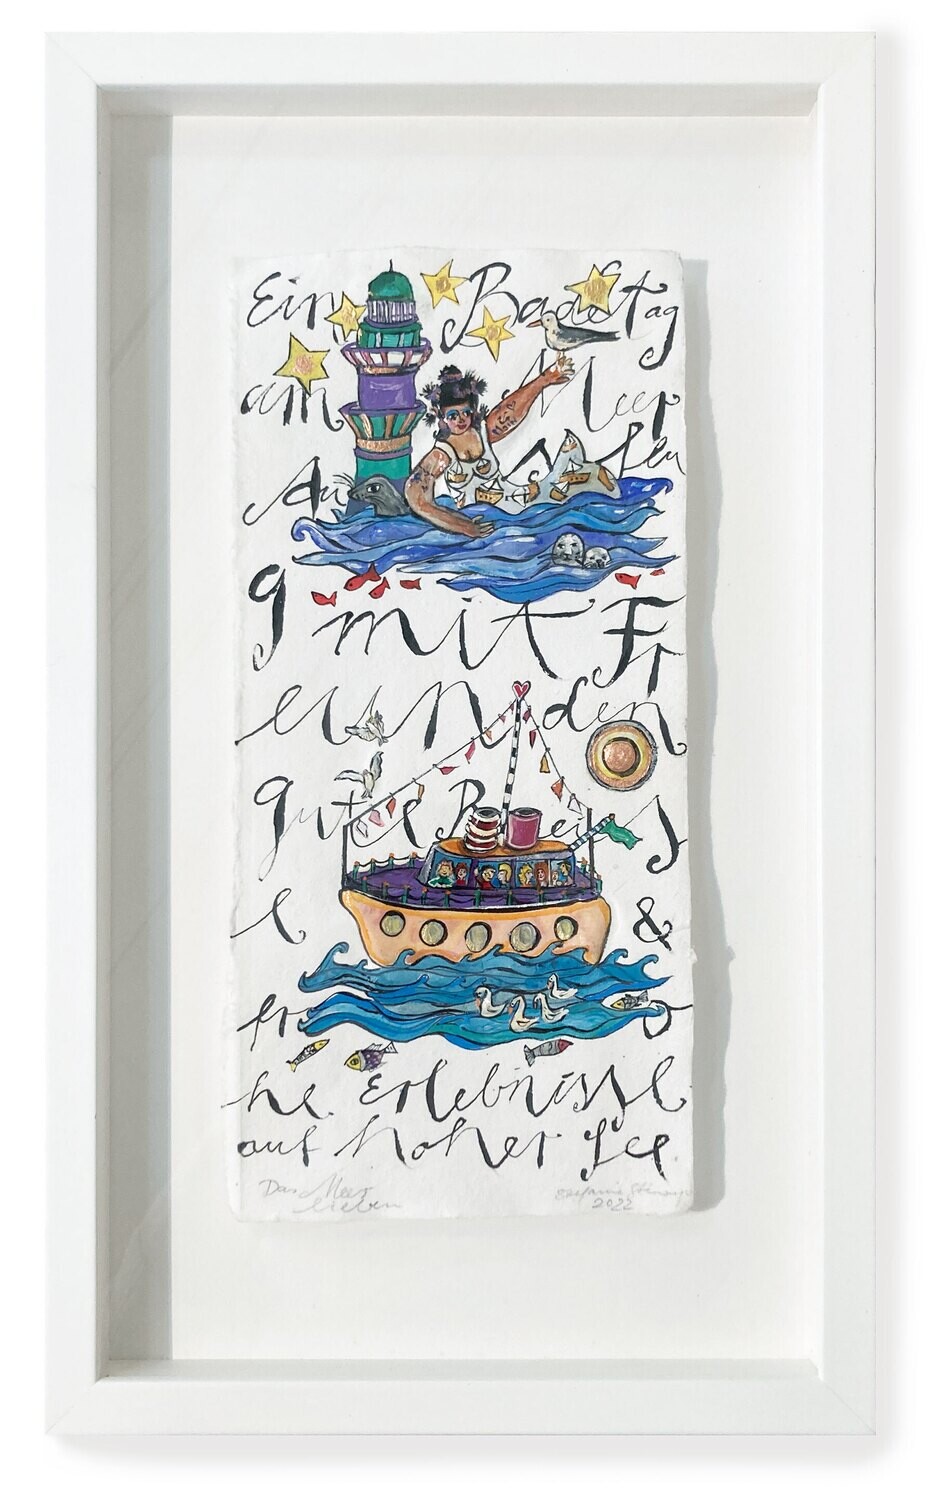 Ein Badetag
am Meer
Au s flu
g mit Fr
eunden
gute B ei s
e &
fr o
he Erlebnisse
auf hoher See.
Moin
Das Meer
lieben
2022